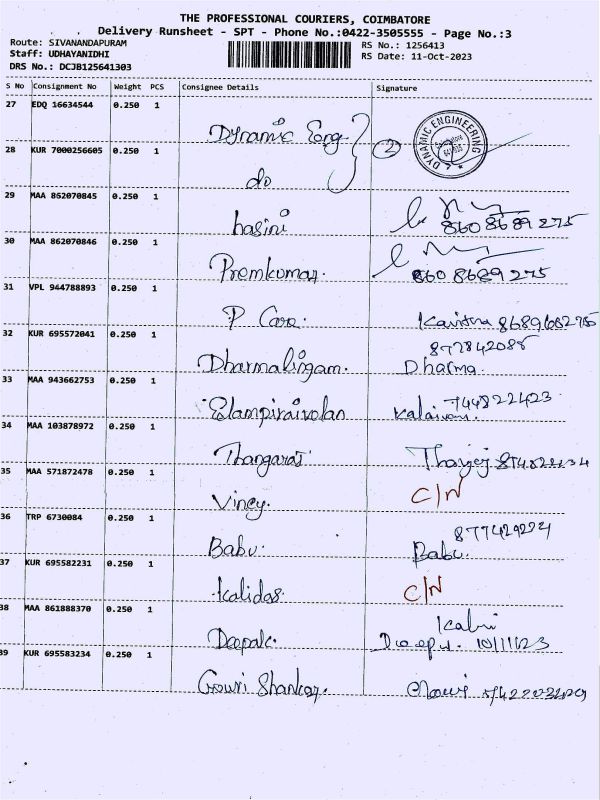 THE PROFESSIONAL COURIERS, COIMBATORE
Delivery Runsheet - SPT - Phone No.:0422-3505555 - Page No.:3
Route: SIVANANDAPURAM
Staff: UDHAYANIDHI
DRS No.: DCJB125641303
RS No.: 1256413
RS Date: 11-Oct-2023
S No Consignment No Weight PCS Consignee Details Signature
27 EDQ 16634544 0.250 1
Dynamic Eng
DYNAMIC ENGINEERING
28 KUR 7000256605 0.250 1
do
2
29 MAA 862070845 0.250 1
hasini 860 8689 275
30 MAA 862070846 0.250 1
Premkumar. 860 8689 275
31 VPL 944788893 0.250 1
P Care. Kavitha
32 KUR 695572041 0.250 1
Dharmalingam. Dharma.
33 MAA 943662753 0.250 1
Elampiraivolan 744822423
34 MAA 103878972 0.250 1
Thangaraj
35 MAA 571872478 0.250 1
Viney. C/N
36 TRP 6730084 0.250 1
877429294
Babu. Babu.
37 KUR 695582231 0.250 1
Kalidas. C/N
38 MAA 861888370 0.250 1
Deepak. 10/11/23
39 KUR 695583234 0.250 1
Gowri Shankar. Gowri